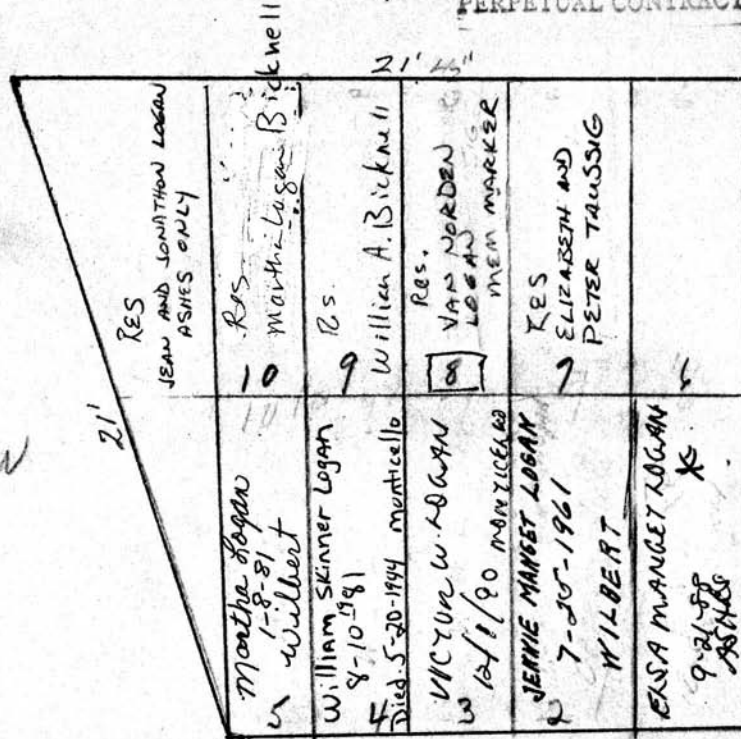 PERPETUAL CONTRACT
21'
21'
RES
JEAN AND JONATHON LOGAN
ASHES ONLY
Res
10
Martha Logan Bicknell
Rs.
9
William A. Bicknell
Res.
8
VAN NORDEN
LOGAN
MEM MARKER
RES
7
ELIZABETH AND
PETER TAUSSIG
Martha Logan
1-8-81
Wilbert
5
William Skinner Logan
8-10-1981
4
Died 5-20-1994 monticello
VICTOR W. LOGAN
3
12/1/90 MONTICELLO
JENNIE MANGET LOGAN
2
7-25-1961
WILBERT
ELSA MANGET LOGAN
9-21-88
ASHES